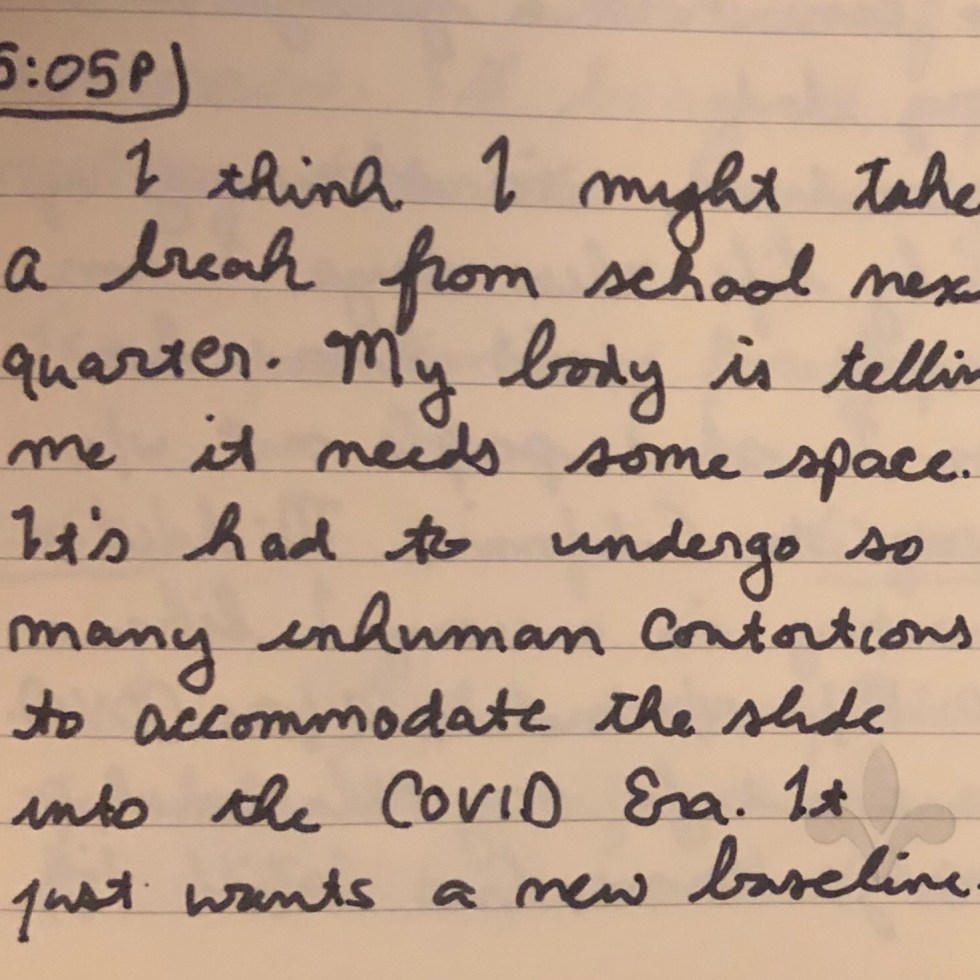 5:05P)
I think I might take
a break from school nex
quarter. My body is tellin
me it needs some space.
It's had to undergo so
many inhuman contortions
to accommodate the slide
into the COVID Era. It
just wants a new baseline.